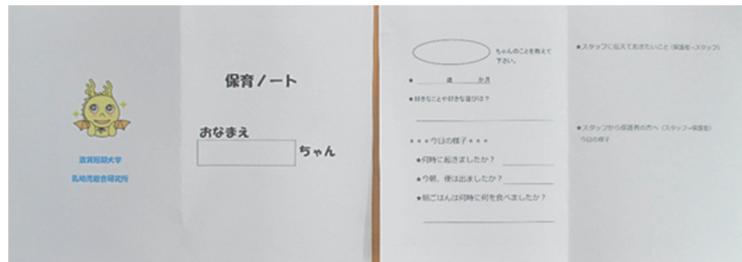 滋賀短期大学
乳幼児総合研究所
保育ノート
おなまえ
ちゃん
ちゃんのことを教えて
下さい。
★ 歳 か月
★好きなことや好きな遊びは？
＊＊＊今日の様子＊＊＊
★何時に起きましたか？
★今朝、便は出ましたか？
★朝ごはんは何時に何を食べましたか？
★スタッフに伝えておきたいこと（保護者→スタッフ）
★スタッフから保護者の方へ（スタッフ→保護者）
今日の様子